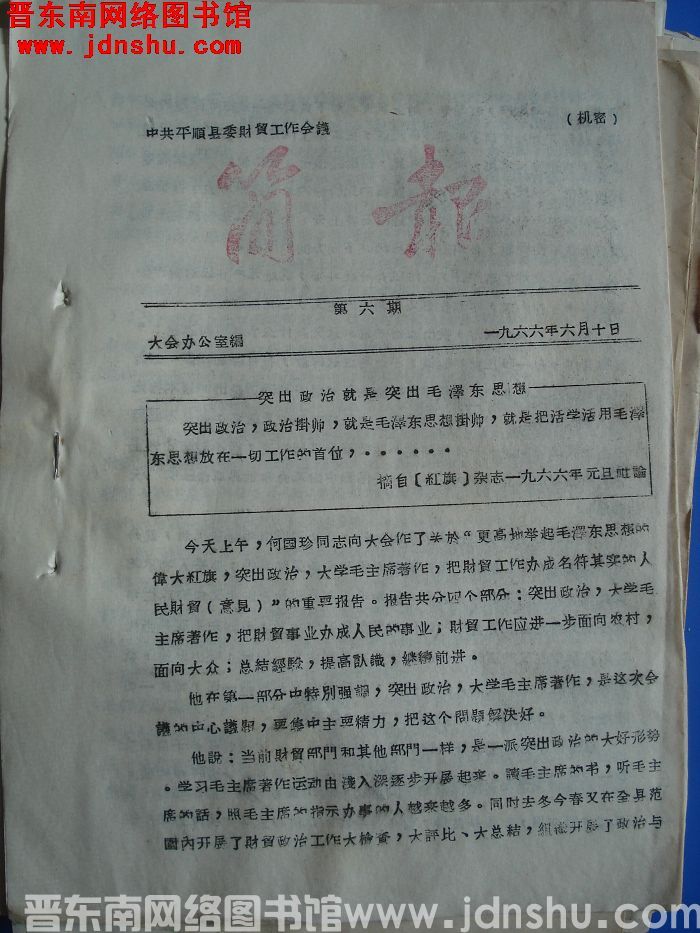 晋东南网络图书馆
www.jdnshu.com
中共平順县委財貿工作会議
（机密）
简报
第六期
大会办公室編
一九六六年六月十日
突出政治就是突出毛澤东思想
突出政治，政治掛帅，就是毛澤东思想掛帅，就是把活学活用毛澤
东思想放在一切工作的首位，······
摘自〔紅旗〕杂志一九六六年元旦社論
今天上午，何国珍同志向大会作了关於“更高地举起毛澤东思想的
偉大紅旗，突出政治，大学毛主席著作，把財貿工作办成名符其实的人
民財貿（意見）”的重要报告。报告共分四个部分：突出政治，大学毛
主席著作，把財貿事业办成人民的事业；財貿工作应进一步面向农村，
面向大众；总結經驗，提高認識，継續前进。
他在第一部分中特別强調，突出政治，大学毛主席著作，是这次会
議的中心議題，要集中主要精力，把这个問題解決好。
他說：当前財貿部門和其他部門一样，是一派突出政治的大好形势
。学习毛主席著作运动由淺入深逐步开展起来。讀毛主席的书，听毛主
席的話，照毛主席的指示办事的人越来越多。同时去冬今春又在全县范
圍內开展了財貿政治工作大檢查，大評比、大总結，組織开展了政治与
晋东南网络图书馆www.jdnshu.com